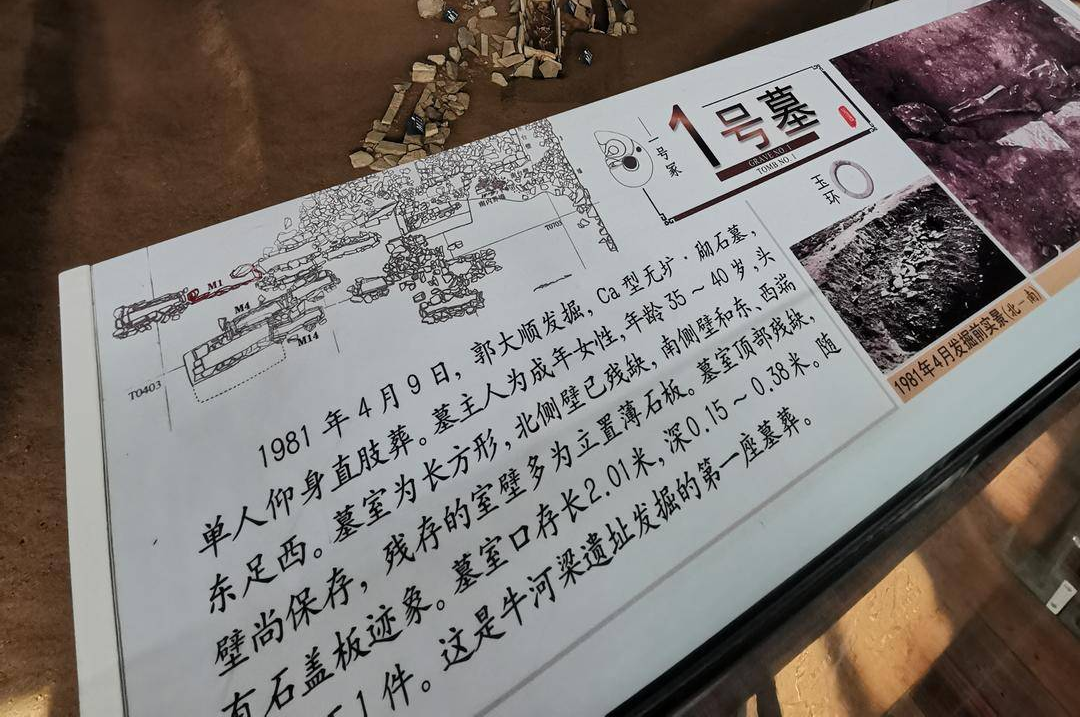 1号墓
GRAVE NO.1
TOMB NO.1
一号冢
玉环
M1
M4
M14
T0403
T0703
1981年4月9日，郭大顺发掘，Ca型无圹·砌石墓，
单人仰身直肢葬。墓主人为成年女性，年龄35～40岁，头
东足西。墓室为长方形，北侧壁已残缺，南侧壁和东、西端
壁尚保存，残存的室壁多为立置薄石板。墓室顶部残缺，
有石盖板迹象。墓室口存长2.01米，深0.15～0.38米。随
1件。这是牛河梁遗址发掘的第一座墓葬。
1981年4月发掘前实景(北—南)